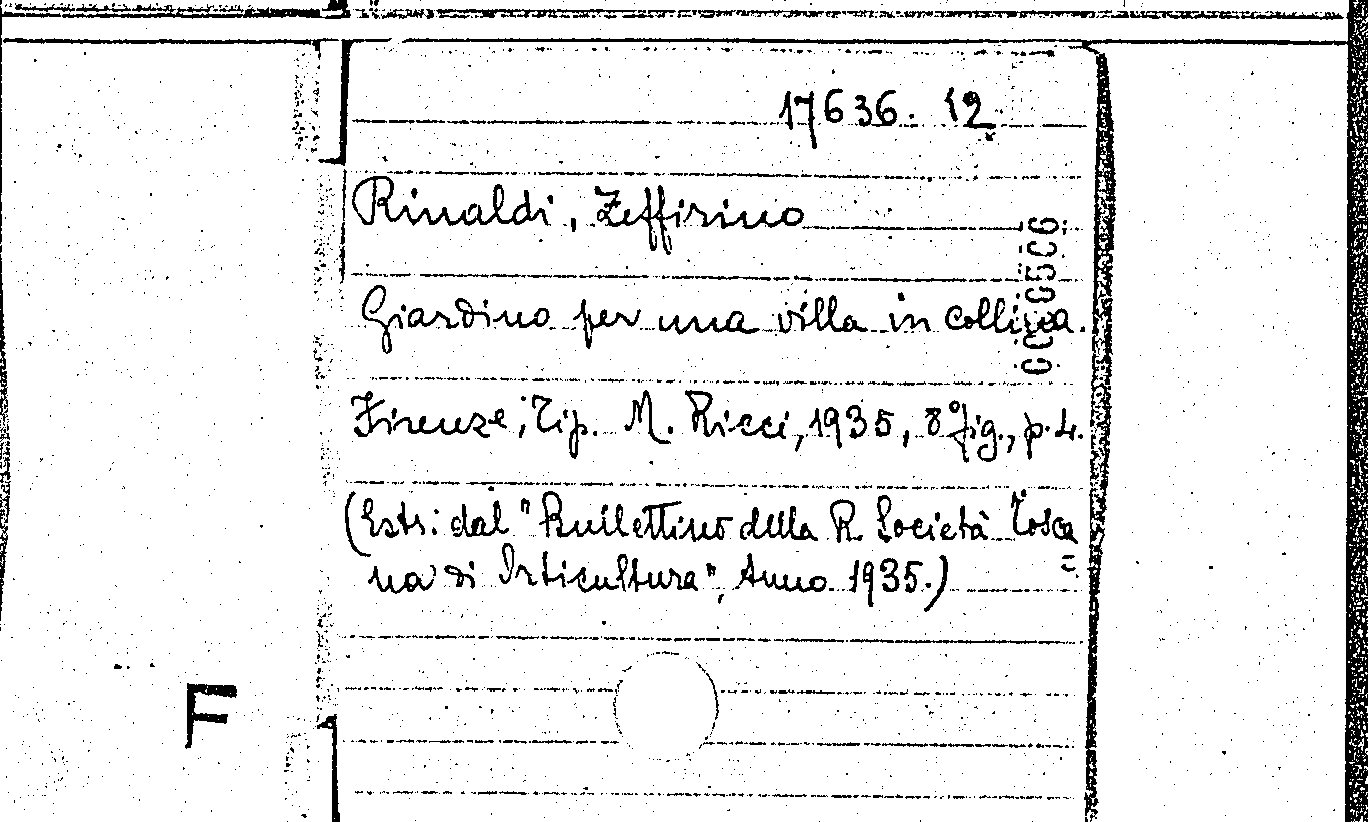 17636. 12
Rinaldi, Zeffirino
Giardino per una villa in collina.
Firenze, Tip. M. Ricci, 1935, 8° fig., p. 4.
(Estr. dal "Bullettino della R. Società Tosca=
na di Orticultura", Anno 1935.)
F